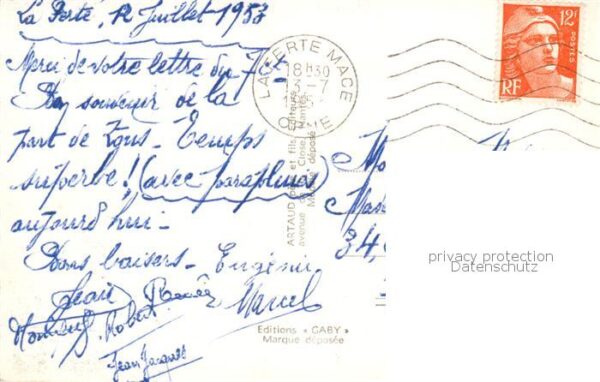 La Ferté, 12 Juillet 1953
Merci de votre lettre du 7 ct
Bon souvenir de la
part de Tous - Temps
superbe! (avec parapluie)
aujourd'hui -
Bons baisers - Eugénie
Jean Renée Marcel
Robert
Jean Jacques
LA FERTE MACE
18 H30
-7
ORNE
12F
POSTES
RF
ARTAUD père et fils, Editeurs
avenue de la Close, Nantes
Marque déposée
34,
privacy protection
Datenschutz
Editions « GABY »
Marque déposée